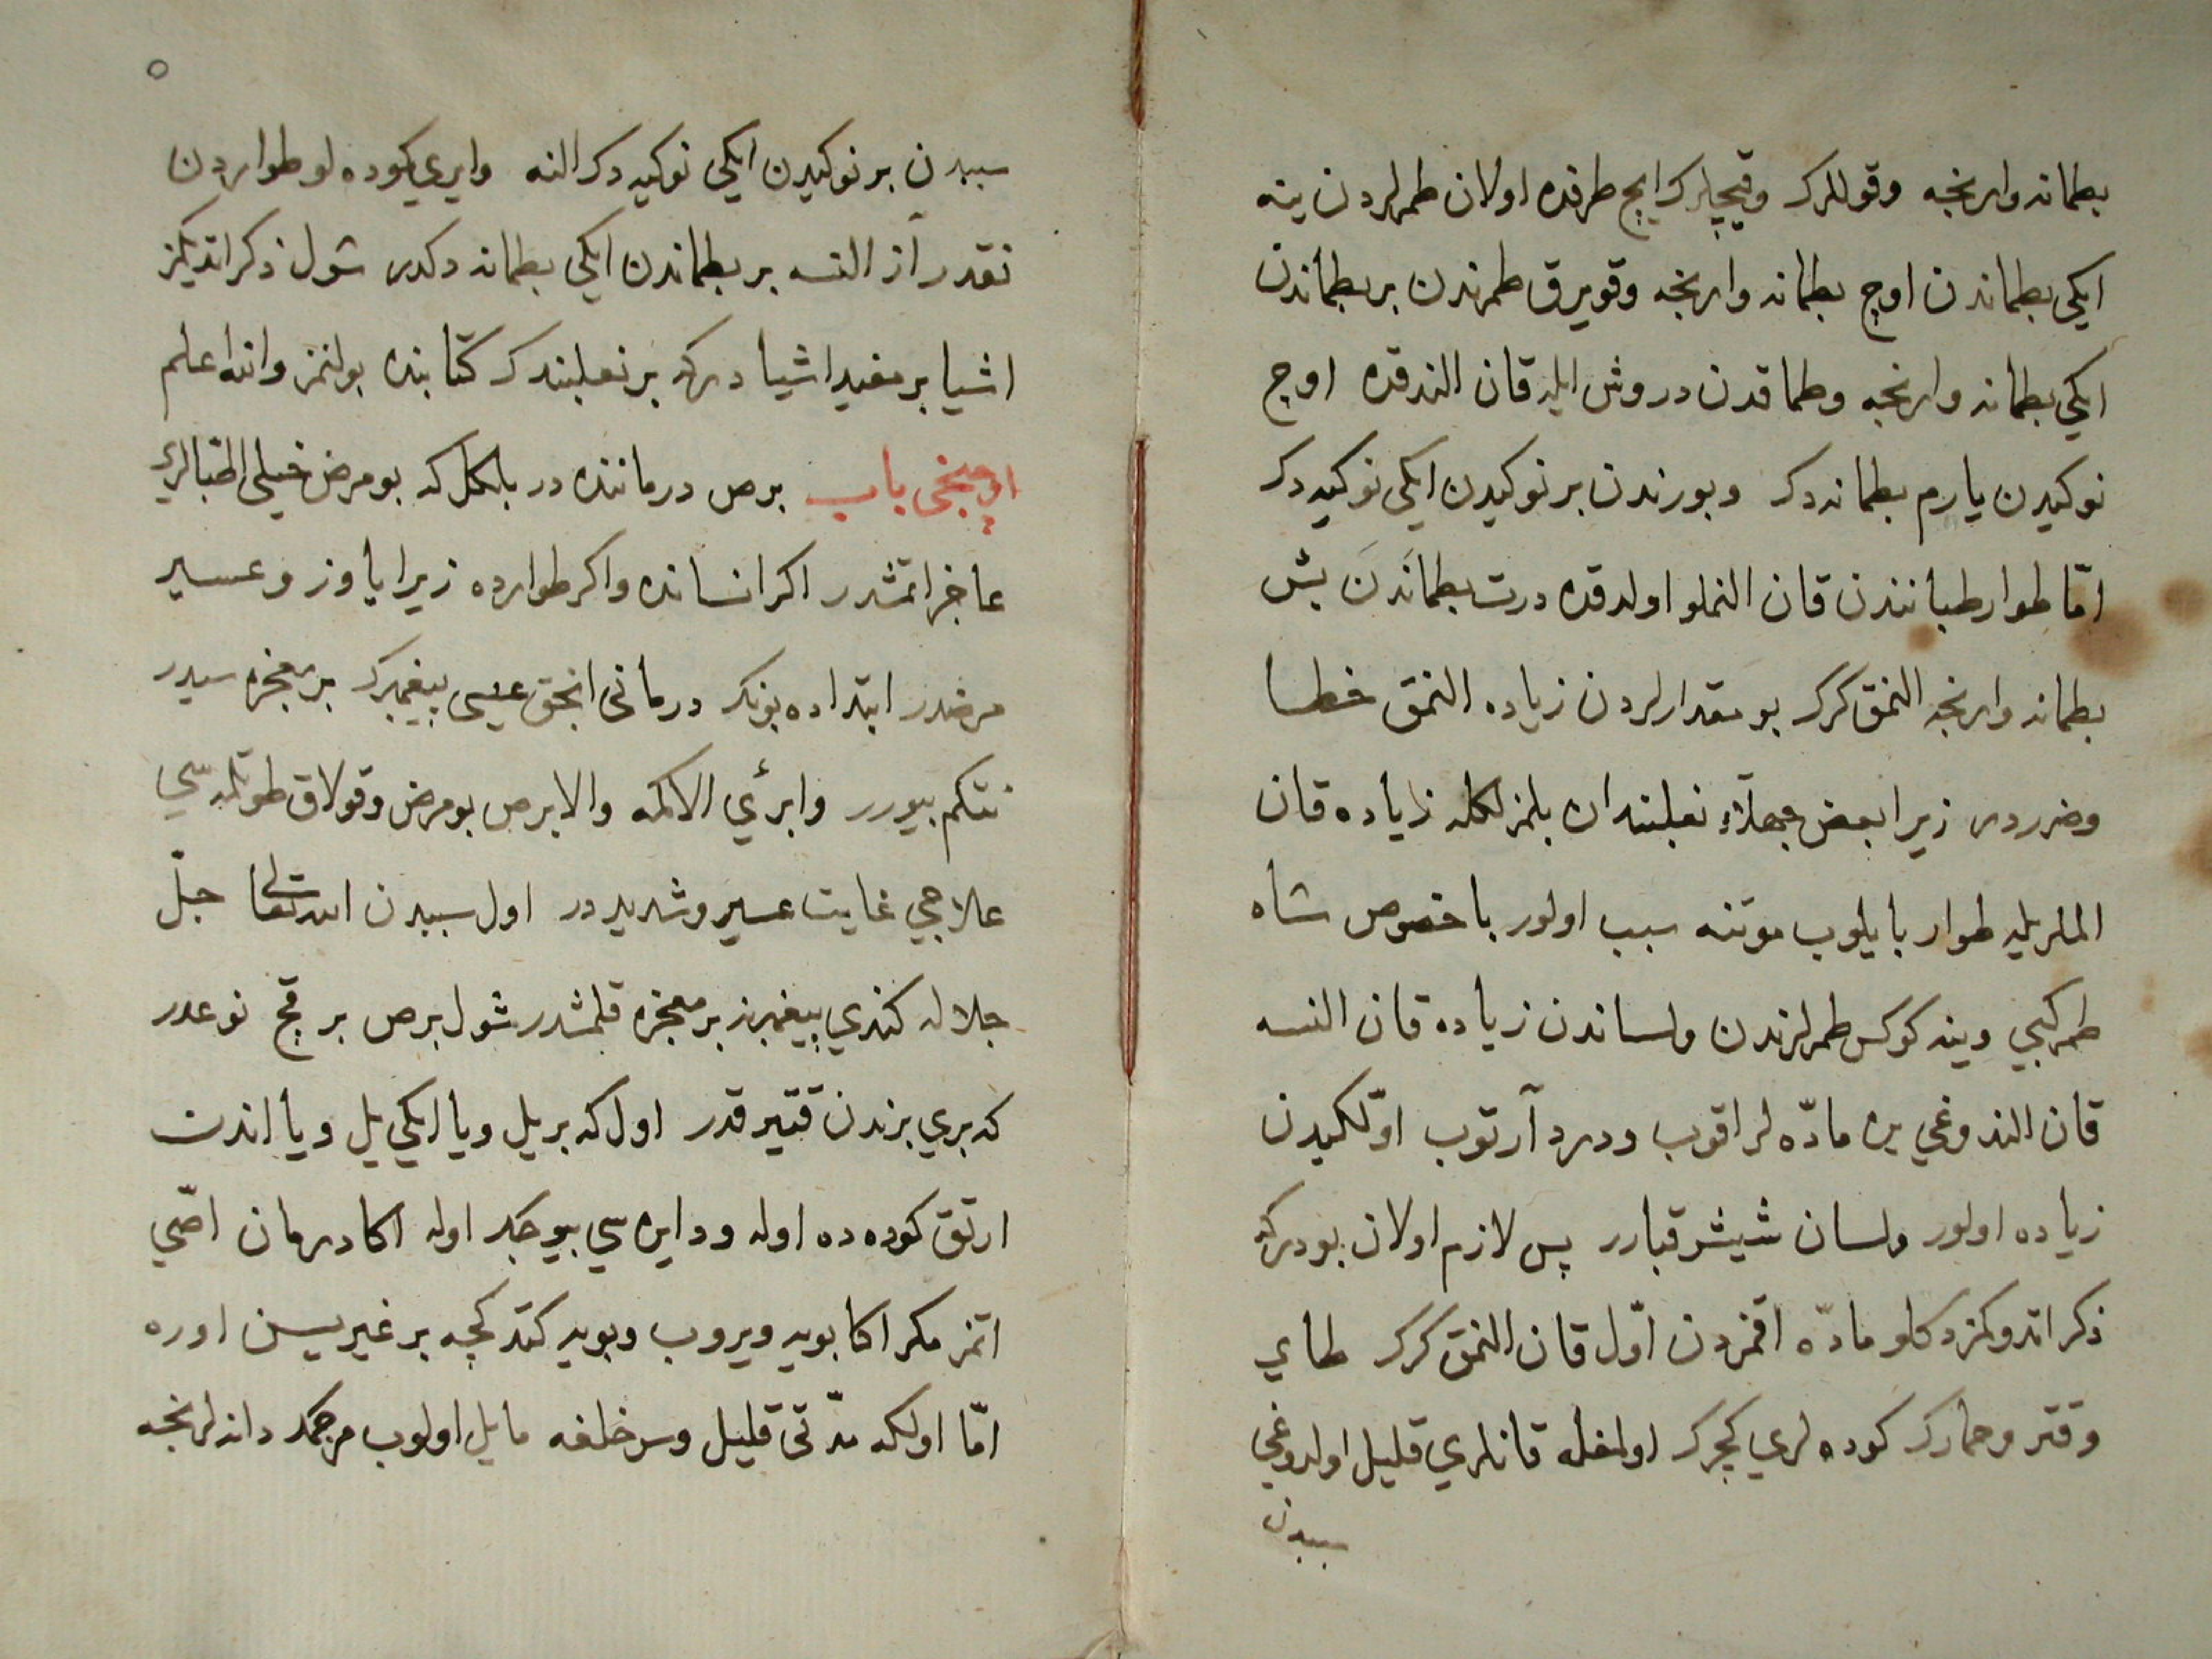 بطمانه وارنجه وقوللرك وقيچلرك ايچ طرفنده اولان طمرلردن ينه
ايكي بطماندن اوچ بطمانه وارنجه وقويرق طمرندن بر بطماندن
ايكي بطمانه وارنجه وطماقدن دروش ايله قان الندقده اوچ
نوكيدن يارم بطمانه دك وبورندن بر نوكيدن ايكي نوكيه دك
امّا طوار طبانندن قان النملو اولدقده درت بطماندن بش
بطمانه وارنجه النمق كرك بو مقدارلردن زياده النمق خطا
وضرردر زيرا بعض جهلاء نعلبندان بلمزلكله زياده قان
الملريله طوار بايلوب موتنه سبب اولور باخصوص شاه
طمر كبي وينه كوكس طمرلرندن ولساندن زياده قان النسه
قان الندوغي يره مادّه لر اقوب ودرد آرتوب اوّلكيدن
زياده اولور ولسان شيشر قبارر پس لازم اولان بودركه
ذكر اتدوكمز دكلو مادّه اقمزدن اوّل قان النمق كرك طاي
وقتر وحمارك كوده لري كچرك اولمغله قانلري قليل اولدوغي
سببدن
٥
سببدن بر نوكيدن ايكي نوكيه دك النه وايري كوده لو طواردن
نقدر آز النسه بر بطماندن ايكي بطمانه دكدر شول ذكر اتديكمز
اشيا بر مفيد اشيا دركه بر نعلبندك كتابنده بولنمز والله اعلم
اوچنجى باب برص درماننده در بلكل كه بو مرض خيلى اطبالري
عاجز اتمشدر اكر انسانده واكر طوارده زيرا ياوز وعسير
مرضدر ابتداده بونك درمانى انجق عيسى پيغمبرك بر معجزه سيدر
نتكم بيورر وابرئي الاكمه والابرص بو مرض وقولاق طوتلمه سي
علاجي غايت عسير وشديد در اول سببدن الله تعالى جلّ
جلاله كندي پيغمبرينه بر معجزه قلمشدر شول برص بر قچ نوعدر
كه بري بزندن قتير قدر اول كه بر يل ويا ايكي يل ويا اندن
ارتق كوده ده اوله ودايره سي بيوجك اوله اكا درمان اصّي
اتمز مكر اكا بويه ويروب وبويه كتدكجه بر غيريسن اوره
امّا اولكه مدّتى قليل وسر خلفه مايل اولوب مرجمك دانه لرنجه